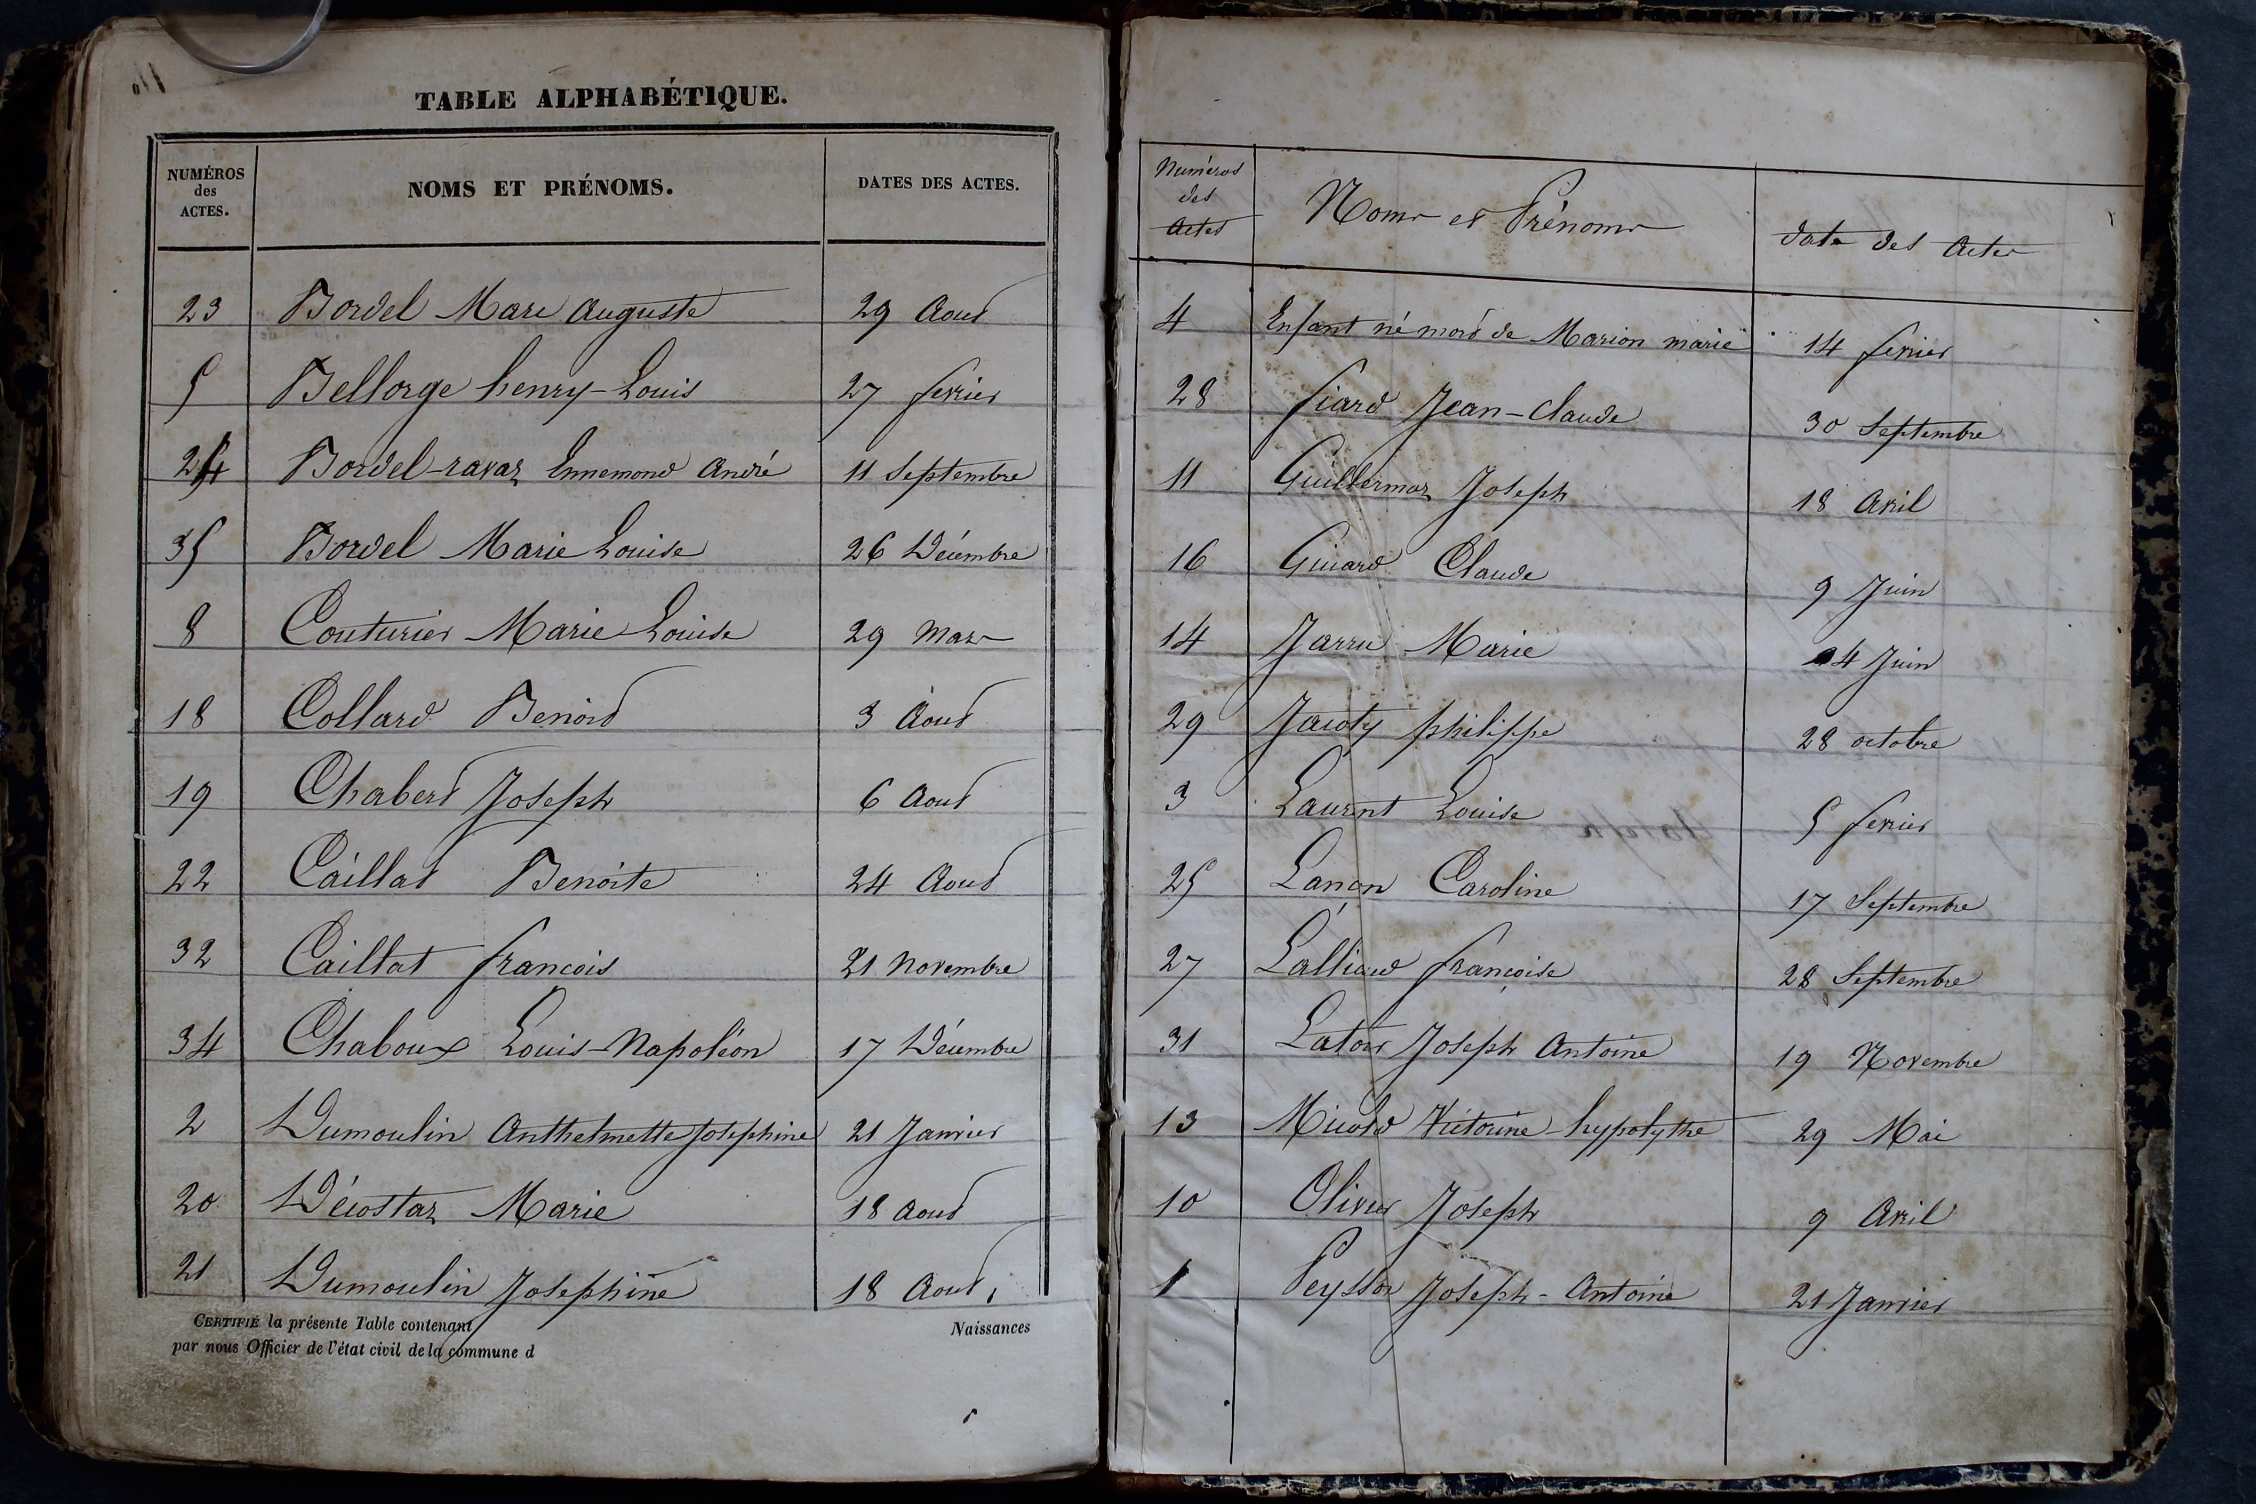 TABLE ALPHABÉTIQUE.
NUMÉROS des ACTES. NOMS ET PRÉNOMS. DATES DES ACTES.
23 Bordel Marc Auguste 29 Aout
5 Bellorge henry-Louis 27 fevrier
24 Bordel-ravaz Ennemond André 11 Septembre
35 Bordel Marie Louise 26 Décembre
8 Couturier Marie Louise 29 Mars
18 Collard Benoit 3 Aout
19 Chabert Joseph 6 Aout
22 Caillat Benoite 24 Aout
32 Caillat francois 21 Novembre
34 Chaboux Louis-Napoléon 17 Décembre
2 Dumoulin Anthelmette Josephine 21 Janvier
20 Décostaz Marie 18 aout
21 Dumoulin Josephine 18 Aout
CERTIFIÉ la présente Table contenant Naissances
par nous Officier de l'état civil de la commune d
Numéros des Actes Noms et Prénoms date des Actes
4 Enfant né mort de Marion marie 14 fevrier
28 fiard Jean-Claude 30 Septembre
11 Guillermaz Joseph 18 Avril
16 Guiard Claude 9 Juin
14 Marie 4 Juin
29 Jacoty philippe 28 octobre
3 Laurent Louise 5 fevrier
25 Lançon Caroline 17 Septembre
27 Lalliaud françoise 28 Septembre
31 Latour Joseph Antoine 19 Novembre
13 Micold Victorine-hypolythe 29 Mai
10 Olivier Joseph 9 Avril
1 Peysson Joseph-Antoine 21 Janvier